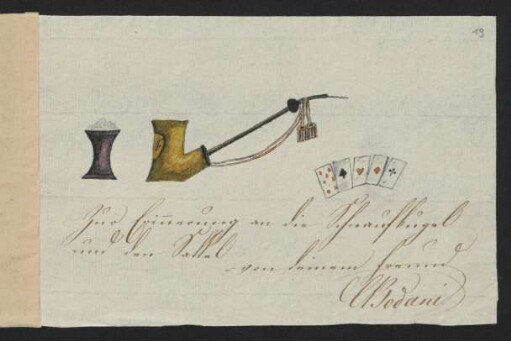 19
Zur Erinnerung an die Schnaufkugel
und den Sattel
von deinem Freund
CBodani